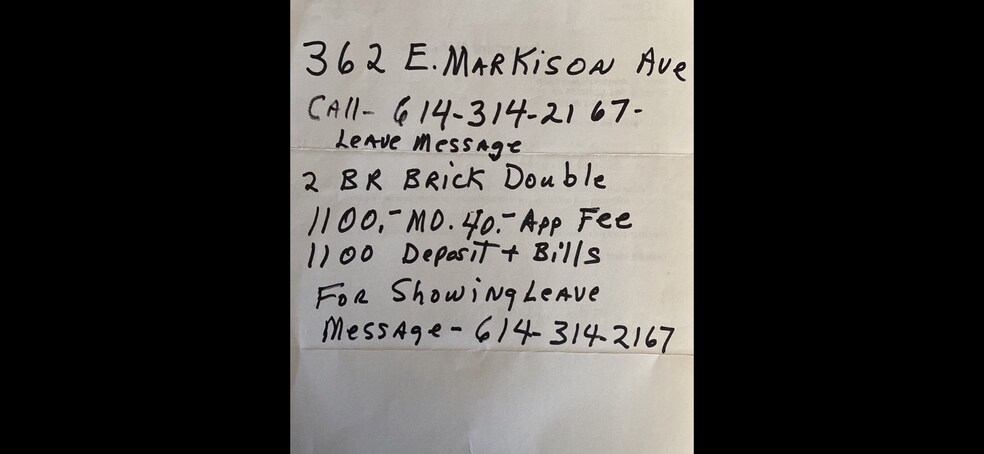 362 E. MARKISON Ave
CAll- 614-314-2167-
LeAve Message
2 BR BRick Double
1100.- MO. 40.- App Fee
1100 Deposit + Bills
FoR Showing LeAve
Message - 614-314-2167